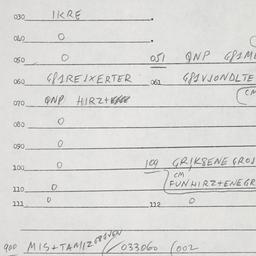 030 IKRE
040 0
050 0 051 QNP G81ME
060 G81REIXERTER 061 G81VJONDLTE
070 QNP HIRZ+ CM
080 0
090 0
100 0 109 GRIKSENE GROJ
CM
110 0 FUNHIRZ+ENEGR
111 0 112 0
900 MIS+TAMIZ 033060 002